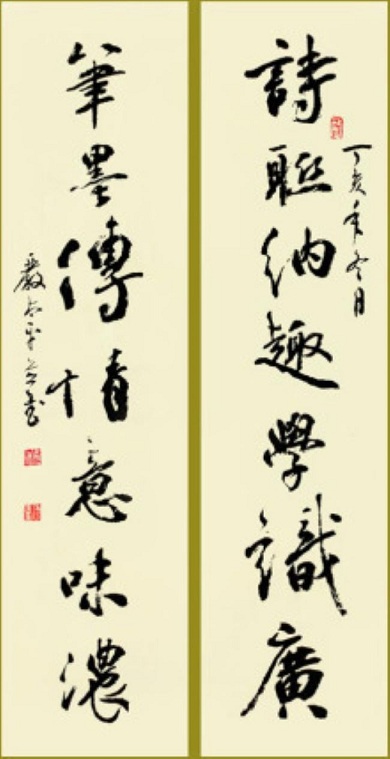 詩聯納趣學識廣
丁亥年冬月
筆墨傳情意味濃
嚴太平書